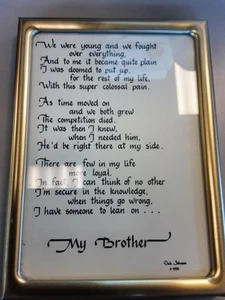 We were young and we fought
over everything,
And to me it became quite plain
I was doomed to put up,
for the rest of my life,
With this super colossal pain.
As time moved on
and we both grew
The competition died.
It was then I knew,
when I needed him,
He'd be right there at my side.
There are few in my life
more loyal.
In fact, I can think of no other
I'm secure in the knowledge,
when things go wrong,
I have someone to lean on . . .
My Brother